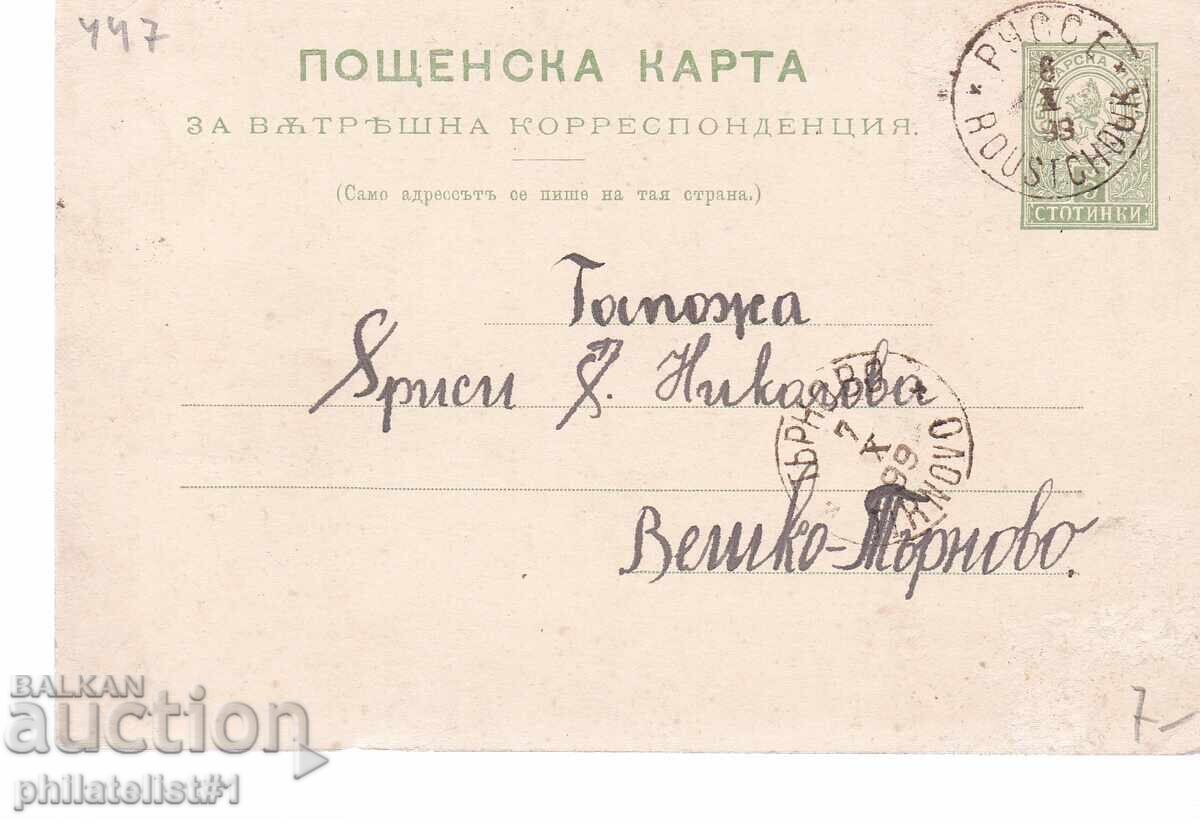 447
ПОЩЕНСКА КАРТА
ЗА ВѪТРѢШНА КОРРЕСПОНДЕНЦИЯ.
(Само адрессътъ се пише на тая страна.)
* РУССЕ * ROUSTCHOUK
6 X 99
СТОТИНКИ
Госпожа
Хриси Х. Николова
ТЪРНОВО * TIRNOVO
7 X 99
Велико-Търново.
7-
BALKAN
auction
philatelist#1